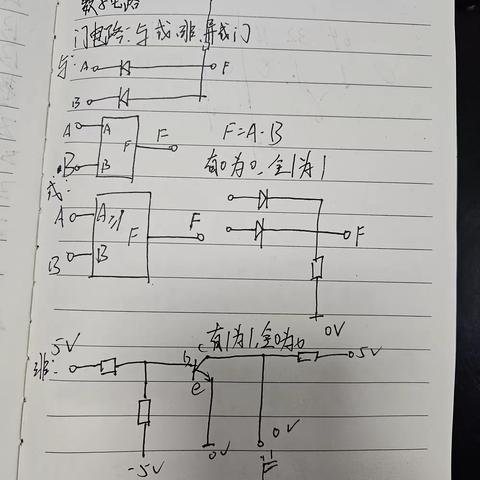 数字电路
门电路:与 或、非、异或门
与: A F
B
A A F F F=A·B
B B 有0为0,全1为1
或:
A A ≥1 F F F
B B
0V
有1为1,全0为0
非: 5V b c 5V
e
-5V 0V 0V
F